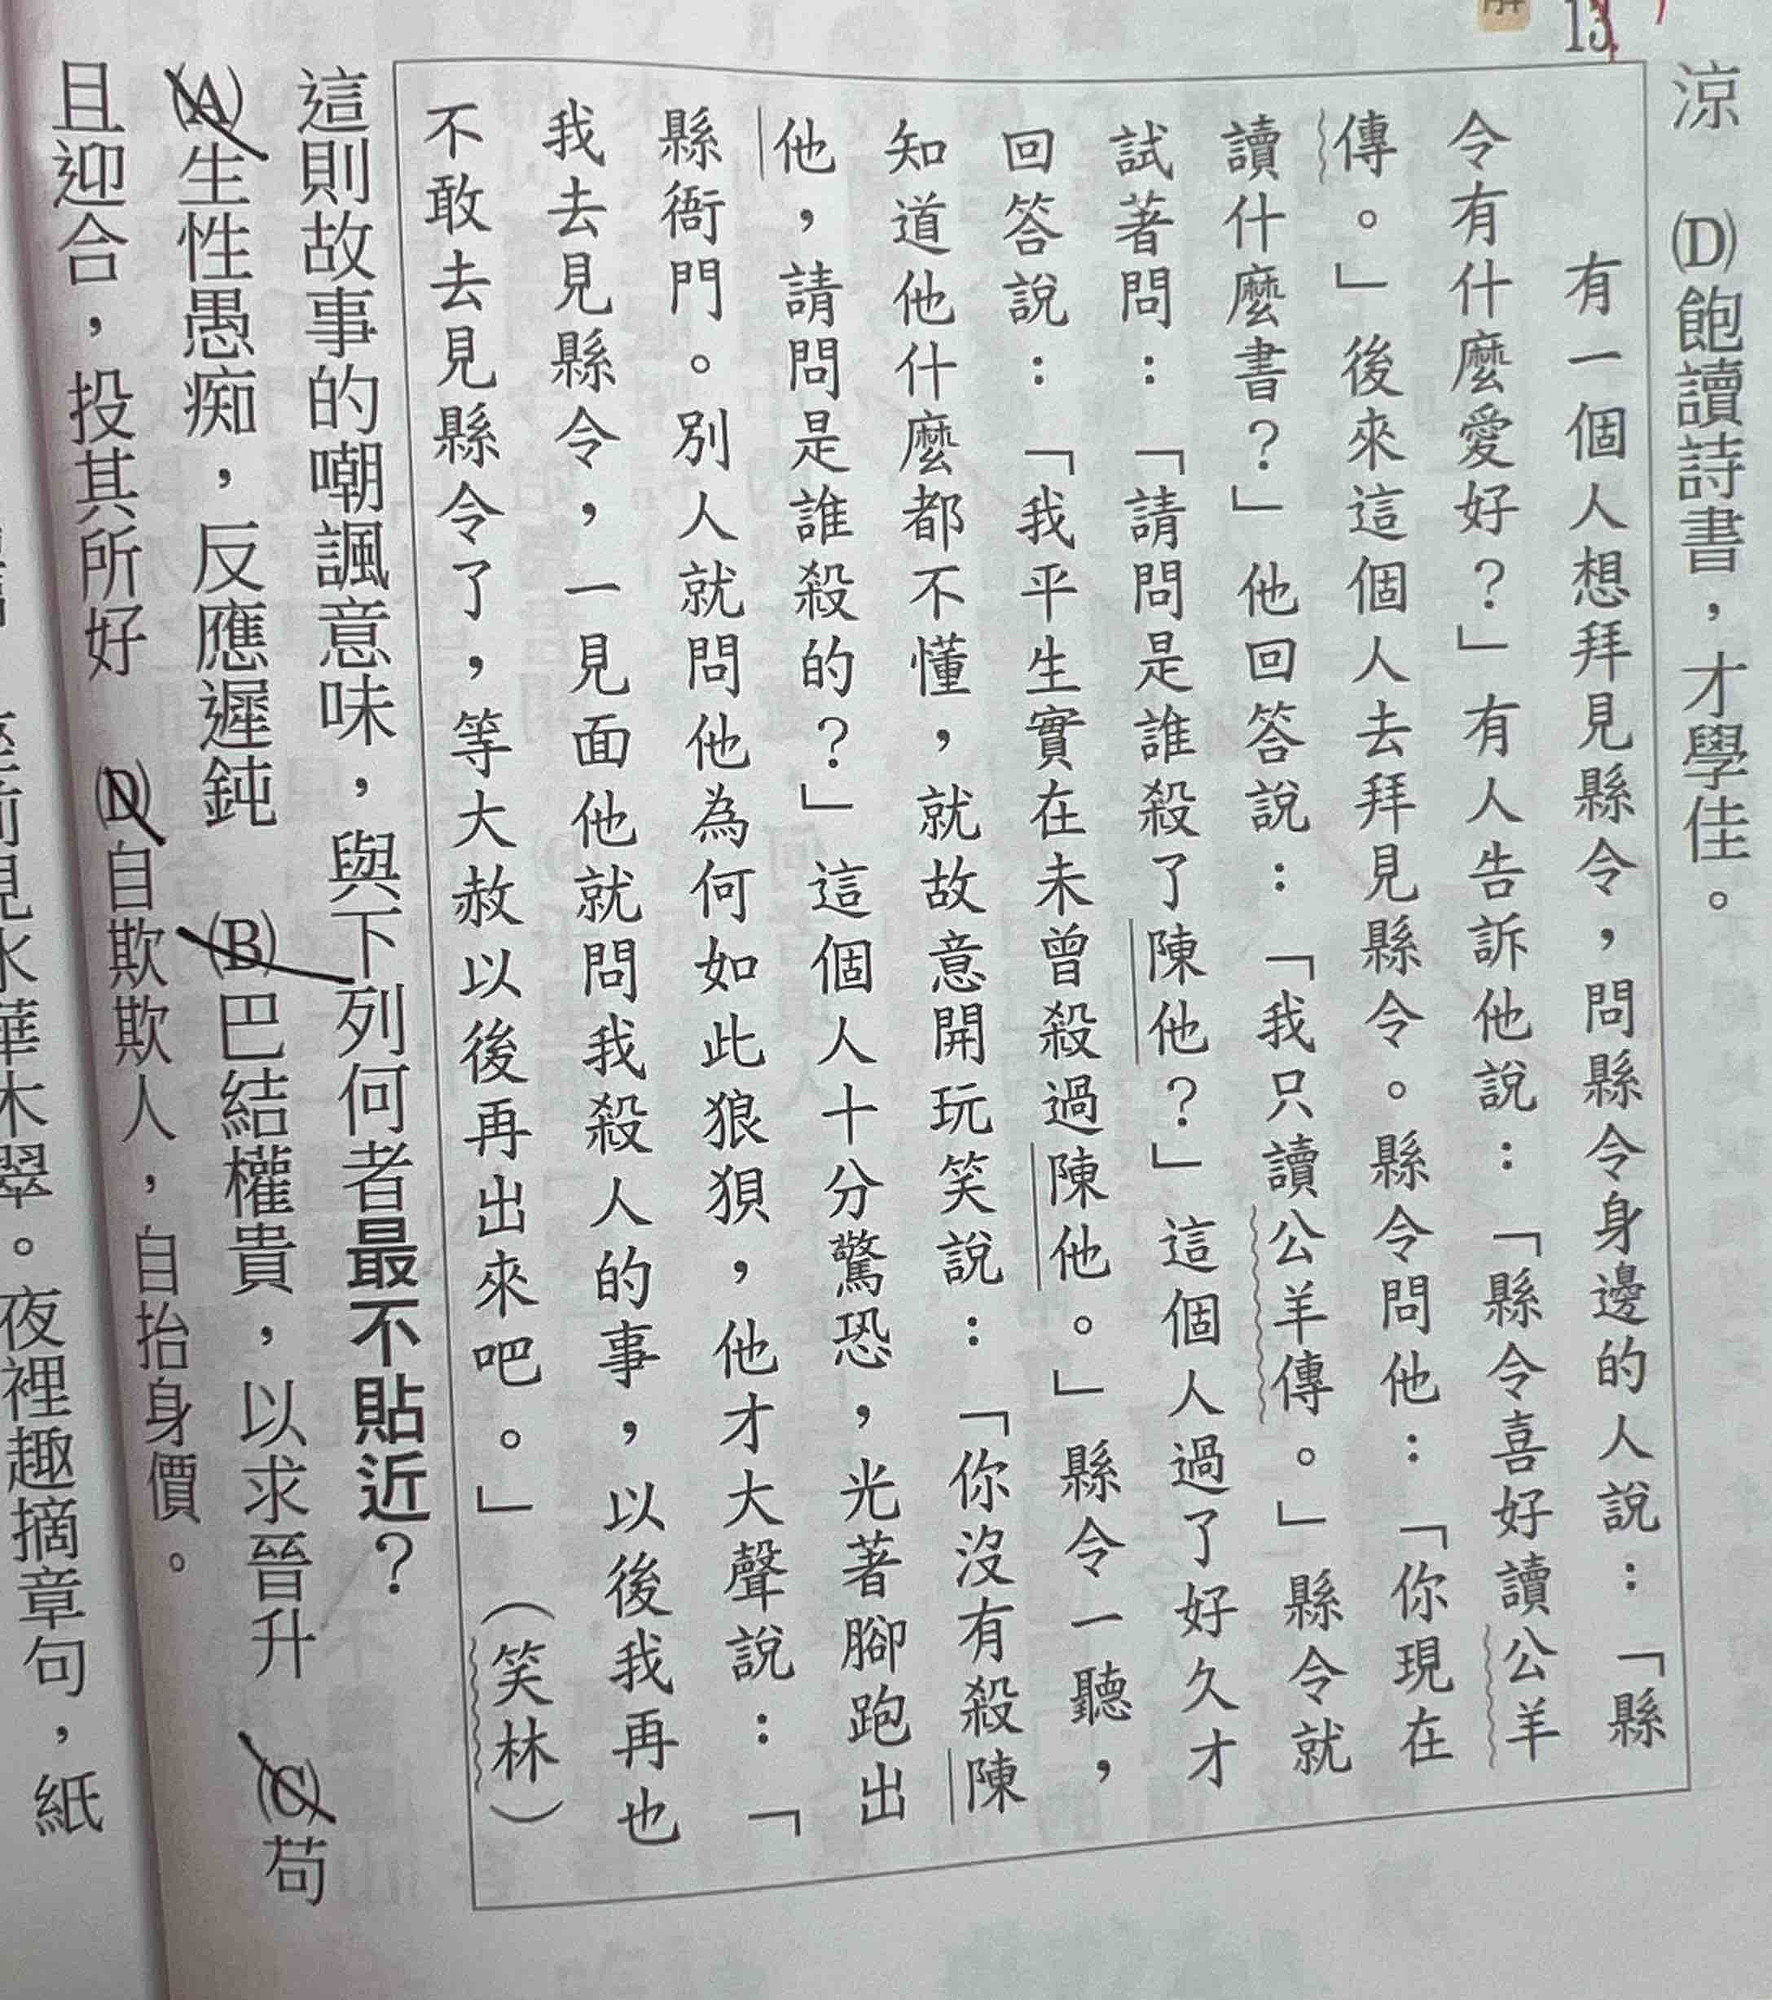 涼　(D)飽讀詩書，才學佳。
13.
有一個人想拜見縣令，問縣令身邊的人說：「縣
令有什麼愛好？」有人告訴他說：「縣令喜好讀公羊
傳。」後來這個人去拜見縣令。縣令問他：「你現在
讀什麼書？」他回答說：「我只讀公羊傳。」縣令就
試著問：「請問是誰殺了陳他？」這個人過了好久才
回答說：「我平生實在未曾殺過陳他。」縣令一聽，
知道他什麼都不懂，就故意開玩笑說：「你沒有殺陳
他，請問是誰殺的？」這個人十分驚恐，光著腳跑出
縣衙門。別人就問他為何如此狼狽，他才大聲說：「
我去見縣令，一見面他就問我殺人的事，以後我再也
不敢去見縣令了，等大赦以後再出來吧。」（笑林）
這則故事的嘲諷意味，與下列何者最不貼近？
(A)生性愚痴，反應遲鈍　(B)巴結權貴，以求晉升　(C)苟
且迎合，投其所好　(D)自欺欺人，自抬身價。
水華木翠。夜裡趣摘章句，紙